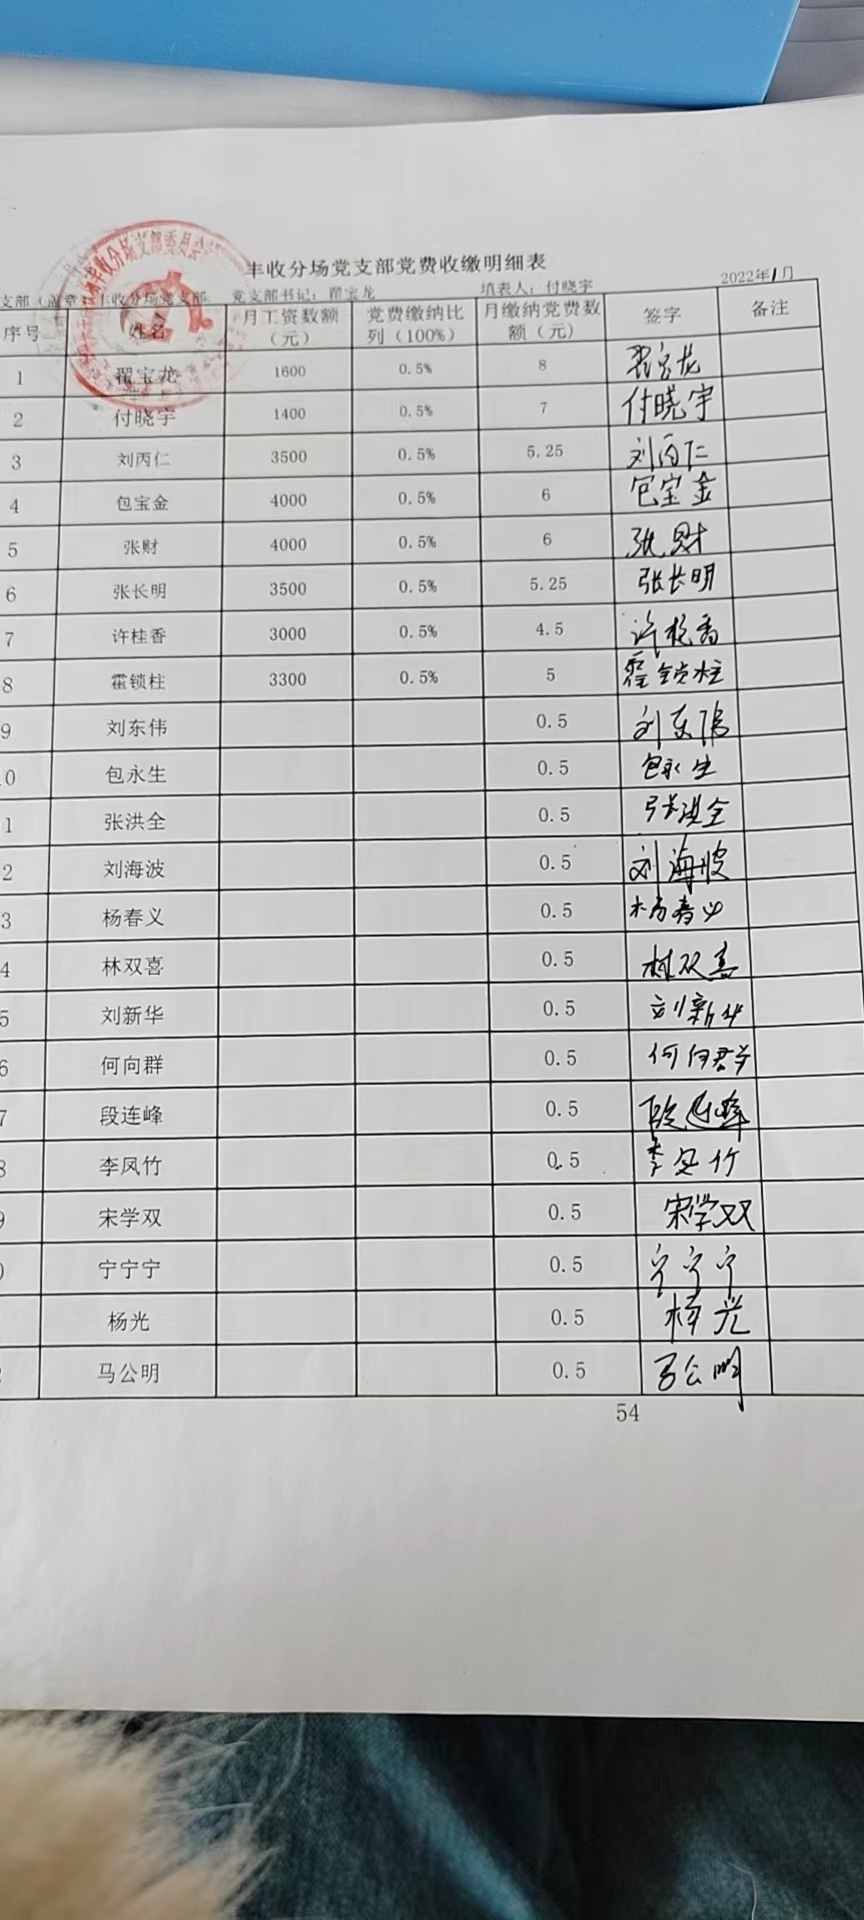 丰收分场支部委员会
丰收分场党支部党费收缴明细表
支部（盖章）丰收分场党支部 党支部书记：翟宝龙 填表人：付晓宇 2022年1月
序号 姓名 月工资数额（元） 党费缴纳比列（100%） 月缴纳党费数额（元） 签字 备注
1 翟宝龙 1600 0.5% 8 翟宝龙
2 付晓宇 1400 0.5% 7 付晓宇
3 刘丙仁 3500 0.5% 5.25 刘丙仁
4 包宝金 4000 0.5% 6 包宝金
5 张财 4000 0.5% 6 张财
6 张长明 3500 0.5% 5.25 张长明
7 许桂香 3000 0.5% 4.5 许桂香
8 霍锁柱 3300 0.5% 5 霍锁柱
9 刘东伟 0.5 刘东伟
0 包永生 0.5 包永生
1 张洪全 0.5 张洪全
2 刘海波 0.5 刘海波
3 杨春义 0.5 杨春义
4 林双喜 0.5 林双喜
5 刘新华 0.5 刘新华
6 何向群 0.5 何向群
7 段连峰 0.5 段连峰
8 李凤竹 0.5 李凤竹
9 宋学双 0.5 宋学双
0 宁宁宁 0.5 宁宁宁
杨光 0.5 杨光
2 马公明 0.5 马公明
54